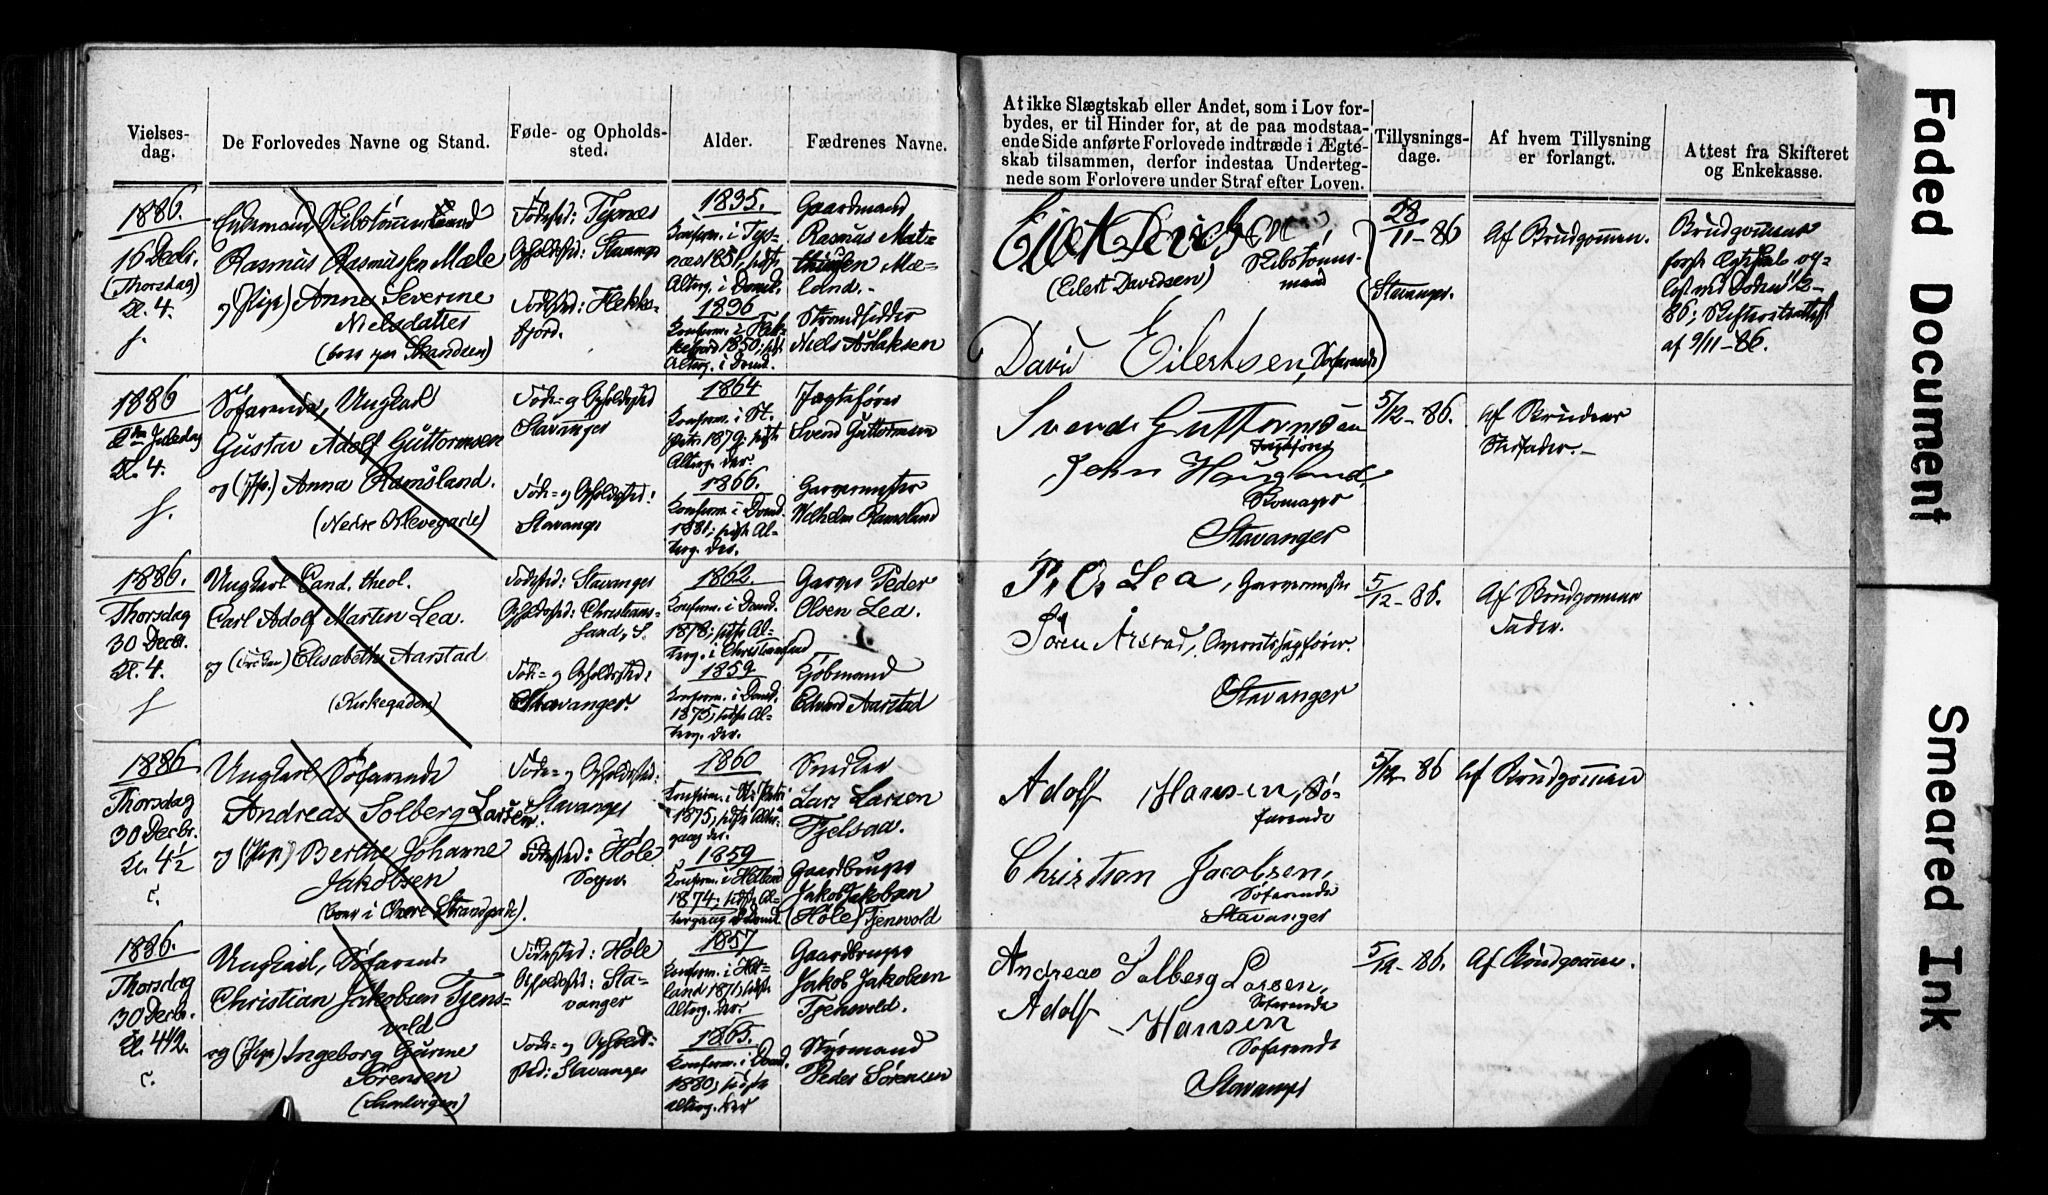 Vielses-
dag.
De Forlovedes Navne og Stand.
Føde- og Opholds-
sted.
Alder.
Fædrenes Navne.
At ikke Slægtskab eller Andet, som i Lov for-
bydes, er til Hinder for, at de paa modstaa-
ende Side anførte Forlovede indtræde i Ægte-
skab tilsammen, derfor indestaa Underteg-
nede som Forlovere under Straf efter Loven.
Tillysnings-
dage.
Af hvem Tillysning
er forlangt.
Attest fra Skifteret
og Enkekasse.
1886.
16 Decbr.
(Thorsdag)
Kl. 4.
f.
Enkemand Skibstømmermand
Rasmus Rasmussen Mæle
og (Pige) Anne Severine
Nielsdatter
Fødested: Tysnes
Opholdssted: Stavanger
Fødested: Flekke-
fjord.
1835.
Konfirm. i Tys-
næs 1851, sidste
Altrg. i Domk.
1836
Konfirm. i Flek-
kefjord 1850; sidste
Altrg. i Domk.
Gaardmand
Rasmus Mat-
thiesen Mæ-
land.-
Strandsidder
Niels Aslaksen
Eilert Davidsen
(Eilert Davidsen)
Skibstømmer-
mand
David Eilertsen, Søfarende
28/11-86
Stavanger.
Af Brudgommen.
Brudgommens
86; Skifteretsattest
af 9/11-86.
1886
2den Juledag
Kl. 4.
f.
Søfarende, Ungkarl
Gustav Adolf Guttormsen
og (Pige) Anna Ramsland.
(Nedre Klevegade)
Føde- og Opholdssted
Stavanger
Føde- og Opholdssted:
Stavanger
1864
Konfirm. i St.
Petri 1879; sidste
Altrg. der.
1866.
Konfirm. i Domk.
1881; sidste Al-
terg. der.
Jægtefører
Svend Guttormsen
Garvermester
Wilhelm Ramsland
Svend Guttormsen
Jægtefører
John Haugland,
Skomager
Stavanger
5/12-86.
Af Brudens
Stedfader.-
1886.
Thorsdag
30 Decbr.
Kl. 4.
f
Ungkarl Cand. theol.
Carl Adolf Martin Lea.
og (Frøken) Elisabeth Aarstad
(Kirkegaden)
Fødested: Stavanger
Opholdssted: Christians-
sand, S.
Føde- og Opholdssted:
Stavanger.
1862
Konfirm. i Domk.
1878; sidste Al-
terg. i Christianssand
1859
Konfirm. i Domk.
1875; sidste Al-
terg. der.
Garver Peder
Olsen Lea.
Kjøbmand
Edvard Aarstad
P. O. Lea, Garvermester
Søren Årstad, Overretssagfører.
Stavanger
5/12-86.
Af Brudgommens
Fader.
1886
Thorsdag
30 Decbr.
Kl. 4½
c.
Ungkarl Søfarende
Andreas Solberg Larsen.
og (Pige) Berthe Johanne
Jakobsen
(boer i Øvre Strandgade).
Føde- og Opholdssted:
Stavanger
Fødested: Høle
Sogn.
1860
Konfirm. i St. Petri
1875; sidste Alter-
gang der.
1859
Konfirm. i Hetland
1874; sidste Al-
tergang i Domk.
Snedker
Lars Larsen
Tjelsaa.
Gaardbruger
Jakob Jakobsen
(Høle) Tjensvold
Adolf Hansen, Sø-
farende
Christian Jacobsen,
Søfarende
Stavanger
5/12-86
Af Brudgommen
1886.
Thorsdag
30 Decbr.
Kl. 4½.
c.
Ungkarl, Søfarende
Christian Jakobsen Tjens-
vold
og (Pige) Ingeborg Gurine
Sørensen
(Sandvigen)
Fødested: Høle
Opholdssted: Sta-
vanger
Føde- og Opholds-
sted: Stavanger
1857
Konfirm. i Het-
land 1871; sidste
Altrg. der.
1865.
Konfirm. i Domk.
1880; sidste
Altrg. der
Gaardbruger
Jakob Jakobsen
Tjensvold.
Styrmand
Peder Sørensen
Andreas Solberg Larsen,
Søfarende
Adolf Hansen
Søfarende
Stavanger
5/12-86.
Af Brudgommen.
Faded Document
Smeared Ink